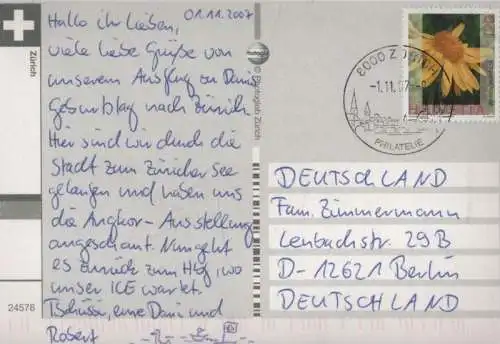 Hallo ihr Lieben, 01.11.2007
viele liebe Grüße von
unserem Ausflug zu Danis
Geburtstag nach Zürich.
Hier sind wir durch die
Stadt zum Züricher See
gelaufen und haben uns
die Angkor-Ausstellung
angeschaut. Nun geht
es zurück zum Hbf, wo
unser ICE wartet.
Tschüssi, eine Dani und
Robert
Zürich
24576
© Photoglob Zürich
8000 ZÜRICH
-1.11.07
PHILATELIE
HELVETIA
DEUTSCHLAND
Fam. Zimmermann
Lenbachstr. 29B
D-12621 Berlin
DEUTSCHLAND